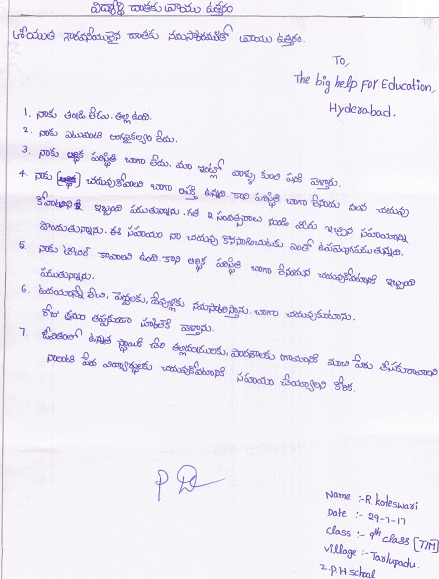 విద్యార్థి దాతకు వ్రాయు ఉత్తరం
గౌరవనీయులైన దాతకు నమస్కారములతో వ్రాయు ఉత్తరం.
To,
The big help For Education,
Hyderabad.
1. నాకు తండ్రి లేడు. తల్లి ఉంది.
2. నాకు ఎటువంటి అంగవైకల్యం లేదు.
3. నాకు ఆర్థిక పరిస్థితి బాగా లేదు. మా ఇంట్లో వాళ్ళు కూలి పనికి వెళ్తారు.
4. నాకు చదువుకోవాలని బాగా ఆసక్తి ఉన్నది. కాని పరిస్థితి బాగా లేనందు వలన చదువు
కోవటానికి ఇబ్బంది పడుతున్నాను. గత 2 సంవత్సరాల నుండి మీరు ఇచ్చిన సహాయాన్ని
పొందుతున్నాను. ఈ సహాయం నా చదువు కొనసాగించుటకు ఎంతో ఉపయోగపడుతున్నది.
5. నాకు టీచర్ కావాలని ఉంది. కాని ఆర్థిక పరిస్థితి బాగా లేనందున చదువుకోవటానికి ఇబ్బంది
పడుతున్నాను.
6. ఉదయాన్నే లేచి, పెద్దలకు, దేవుళ్లకు నమస్కరిస్తాను. బాగా చదువుకుంటాను.
రోజు క్రమం తప్పకుండా స్కూల్‌కి వెళ్తాను.
7. జీవితంలో ఉన్నత స్థాయికి చేరి తల్లిదండ్రులకు, పాఠశాలకు గ్రామానికి మంచి పేరు తీసుకురావాలని
నాలాంటి పేద విద్యార్థులకు చదువుకోవటానికి సహాయం చేయ్యాలని కోరిక.
Name :- R. Koteswari
Date :- 29-7-17
Class :- 9th class [T/M]
Village :- Tarlupadu.
Z.P.H School